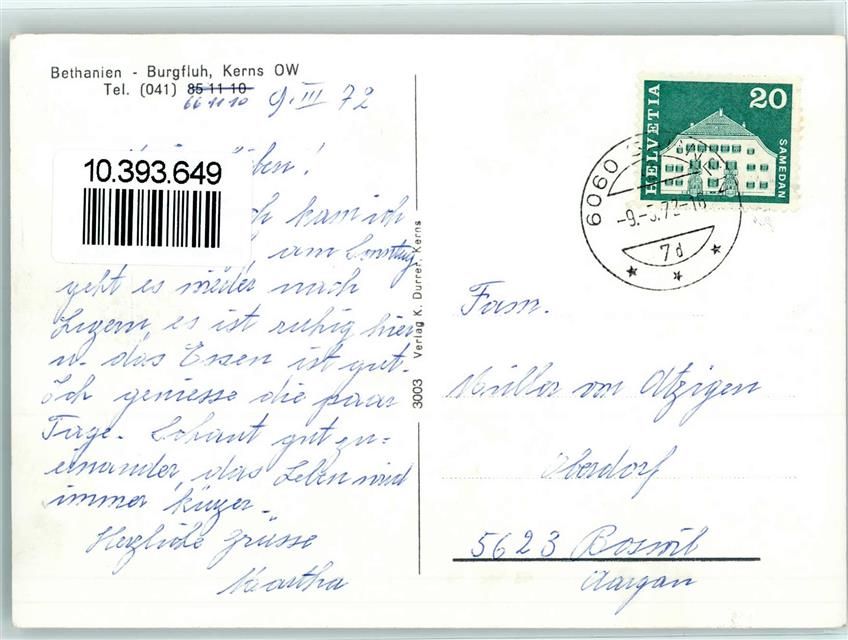 Bethanien - Burgfluh, Kerns OW
Tel. (041) 85 11 10
66 11 10 9. III 72
10.393.649
ben!
ch kam ich
am Sonntag
geht es wieder nach
Luzern, es ist ruhig hier
u. das Essen ist gut.
Ich geniesse die paar
Tage. Schaut gut zu-
einander, das Leben wird
immer kürzer.
Herzliche Grüsse
Martha
3003 Verlag K. Durrer, Kerns
HELVETIA
20
SAMEDAN
6060
-9.-3.72-18
7d
Fam.
Müller von Atzigen
Oberdorf
5623 Boswil
Aargau